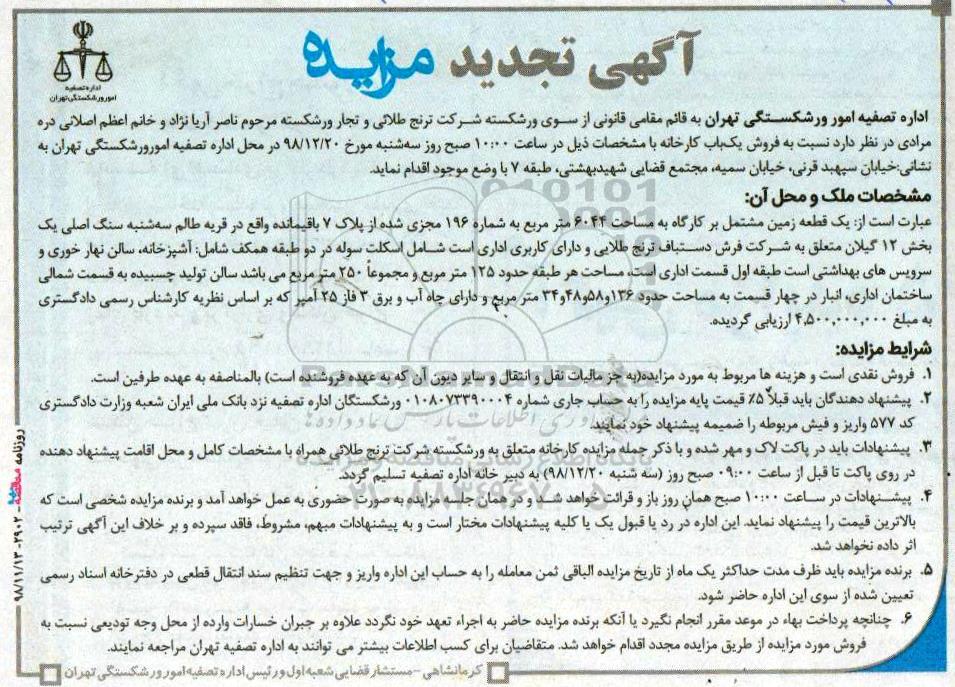 آگهی تجدید مزایده
اداره تصفیه
امور ورشکستگی تهران
اداره تصفیه امور ورشکستگی تهران به قائم مقامی قانونی از سوی ورشکسته شرکت ترنج طلائی و تجار ورشکسته مرحوم ناصر آریا نژاد و خانم اعظم اصلانی دره
مرادی در نظر دارد نسبت به فروش یک‌باب کارخانه با مشخصات ذیل در ساعت ۱۰:۰۰ صبح روز سه‌شنبه مورخ ۹۸/۱۲/۲۰ در محل اداره تصفیه امورورشکستگی تهران به
نشانی:خیابان سپهبد قرنی، خیابان سمیه، مجتمع قضایی شهیدبهشتی، طبقه ۷ با وضع موجود اقدام نماید.
مشخصات ملک و محل آن:
عبارت است از: یک قطعه زمین مشتمل بر کارگاه به مساحت ۶۰۴۴ متر مربع به شماره ۱۹۶ مجزی شده از پلاک ۷ باقیمانده واقع در قریه طالم سه‌شنبه سنگ اصلی یک
بخش ۱۲ گیلان متعلق به شرکت فرش دستباف ترنج طلایی و دارای کاربری اداری است شامل اسکلت سوله در دو طبقه همکف شامل: آشپزخانه، سالن نهار خوری و
سرویس های بهداشتی است طبقه اول قسمت اداری است، مساحت هر طبقه حدود ۱۲۵ متر مربع و مجموعاً ۲۵۰ متر مربع می باشد سالن تولید چسبیده به قسمت شمالی
ساختمان اداری، انبار در چهار قسمت به مساحت حدود ۱۳۶و۵۸و۴۸و۳۴ متر مربع و دارای چاه آب و برق ۳ فاز ۲۵ آمپر که بر اساس نظریه کارشناس رسمی دادگستری
به مبلغ ۴,۵۰۰,۰۰۰,۰۰۰ ارزیابی گردیده.
شرایط مزایده:
۱. فروش نقدی است و هزینه ها مربوط به مورد مزایده(به جز مالیات نقل و انتقال و سایر دیون آن که به عهده فروشنده است) بالمناصفه به عهده طرفین است.
۲. پیشنهاد دهندگان باید قبلاً ۵٪ قیمت پایه مزایده را به حساب جاری شماره ۰۱۰۸۰۷۳۳۹۰۰۰۴ ورشکستگان اداره تصفیه نزد بانک ملی ایران شعبه وزارت دادگستری
کد ۵۷۷ واریز و فیش مربوطه را ضمیمه پیشنهاد خود نمایند.
۳. پیشنهادات باید در پاکت لاک و مهر شده و با ذکر جمله مزایده کارخانه متعلق به ورشکسته شرکت ترنج طلائی همراه با مشخصات کامل و محل اقامت پیشنهاد دهنده
در روی پاکت تا قبل از ساعت ۰۹:۰۰ صبح روز (سه شنبه ۹۸/۱۲/۲۰) به دبیر خانه اداره تصفیه تسلیم گردد.
۴. پیشنهادات در ساعت ۱۰:۰۰ صبح همان روز باز و قرائت خواهد شد و در همان جلسه مزایده به صورت حضوری به عمل خواهد آمد و برنده مزایده شخصی است که
بالاترین قیمت را پیشنهاد نماید. این اداره در رد یا قبول یک یا کلیه پیشنهادات مختار است و به پیشنهادات مبهم، مشروط، فاقد سپرده و بر خلاف این آگهی ترتیب
اثر داده نخواهد شد.
۵. برنده مزایده باید ظرف مدت حداکثر یک ماه از تاریخ مزایده الباقی ثمن معامله را به حساب این اداره واریز و جهت تنظیم سند انتقال قطعی در دفترخانه اسناد رسمی
تعیین شده از سوی این اداره حاضر شود.
۶. چنانچه پرداخت بهاء در موعد مقرر انجام نگیرد یا آنکه برنده مزایده حاضر به اجراء تعهد خود نگردد علاوه بر جبران خسارات وارده از محل وجه تودیعی نسبت به
فروش مورد مزایده از طریق مزایده مجدد اقدام خواهد شد. متقاضیان برای کسب اطلاعات بیشتر می توانند به اداره تصفیه تهران مراجعه نمایند.
کرمانشاهی - مستشار قضایی شعبه اول و رئیس اداره تصفیه امور ورشکستگی تهران
روزنامه مناقصه - ۲۹۰۲ - ۹۸/۱۱/۱۳